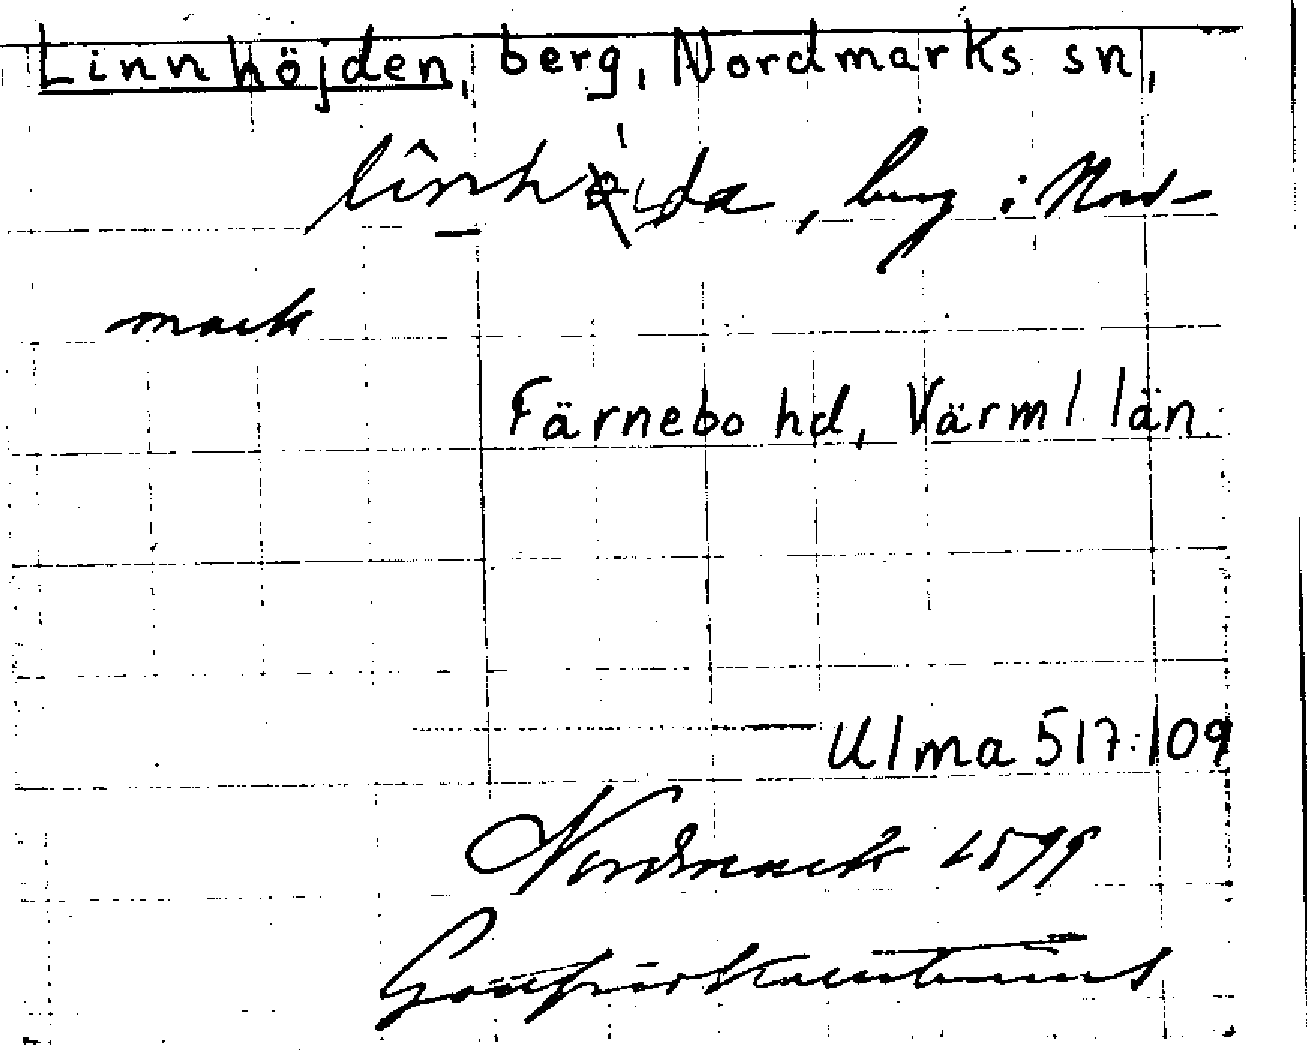 Linnhöjden, berg, Nordmarks sn,
berg i Nord-
mark
Färnebo hd, Värml län
Ulma 517:109
Nordmark 1899